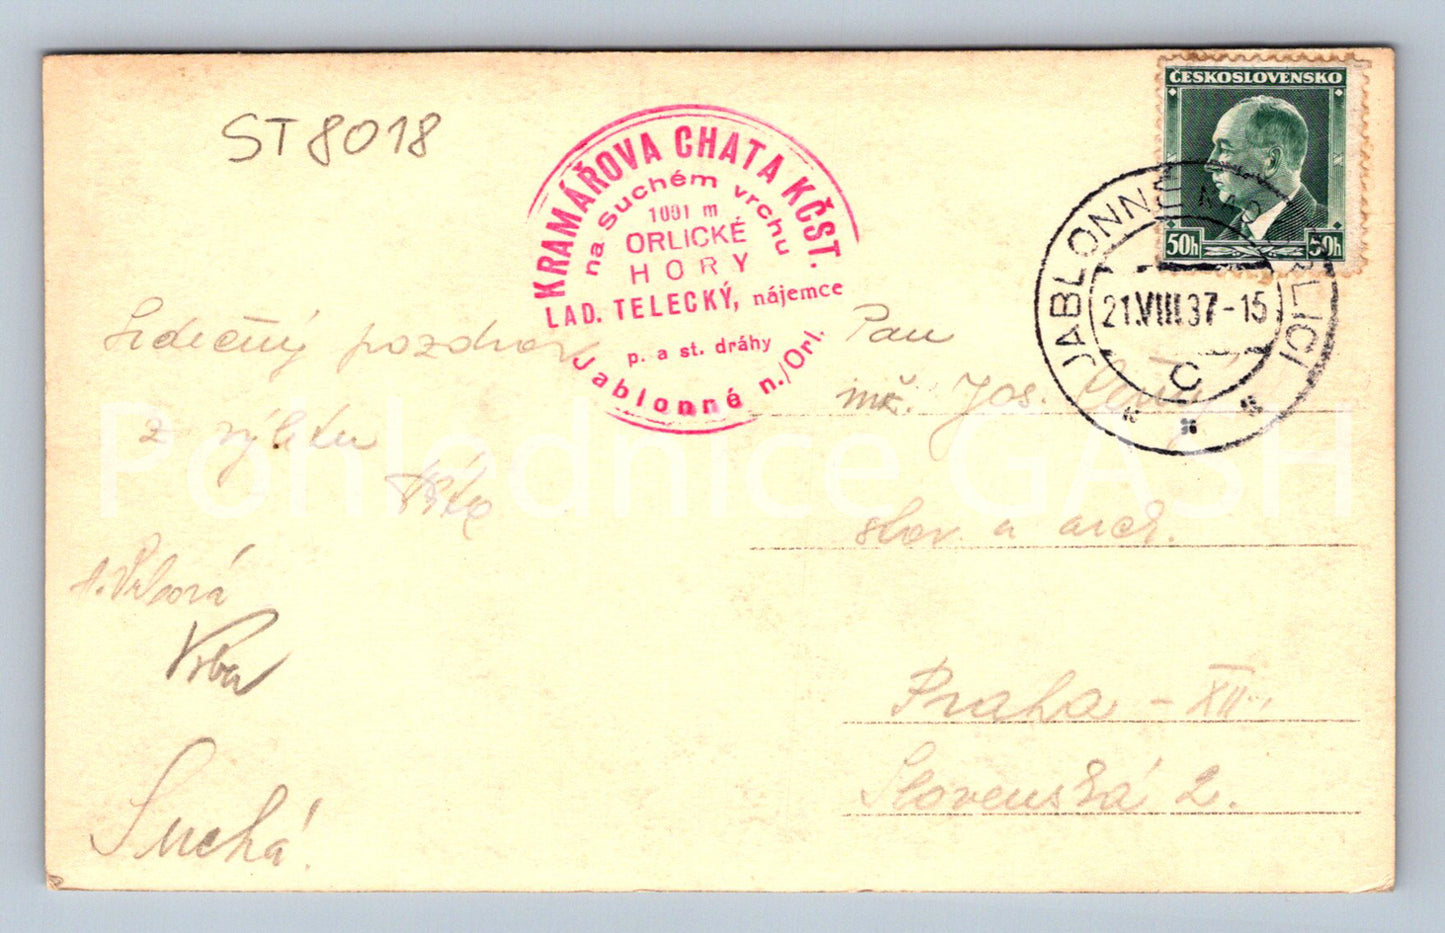 ST 8018
ČESKOSLOVENSKO
50h 50h
KRAMÁŘOVA CHATA KČST.
na Suchém vrchu
1001 m
ORLICKÉ
HORY
LAD. TELECKÝ, nájemce
p. a st. dráhy
Jablonné n./Orl.
JABLONNÉ NAD ORLICÍ
21.VIII.37-15
C
Srdečný pozdrav
z výletu
A. Vrbová
Vrba
Suchá!
Pan
Jos.
slov. a arch.
Praha - XII.
Slovenská 2.
Pohlednice GASH